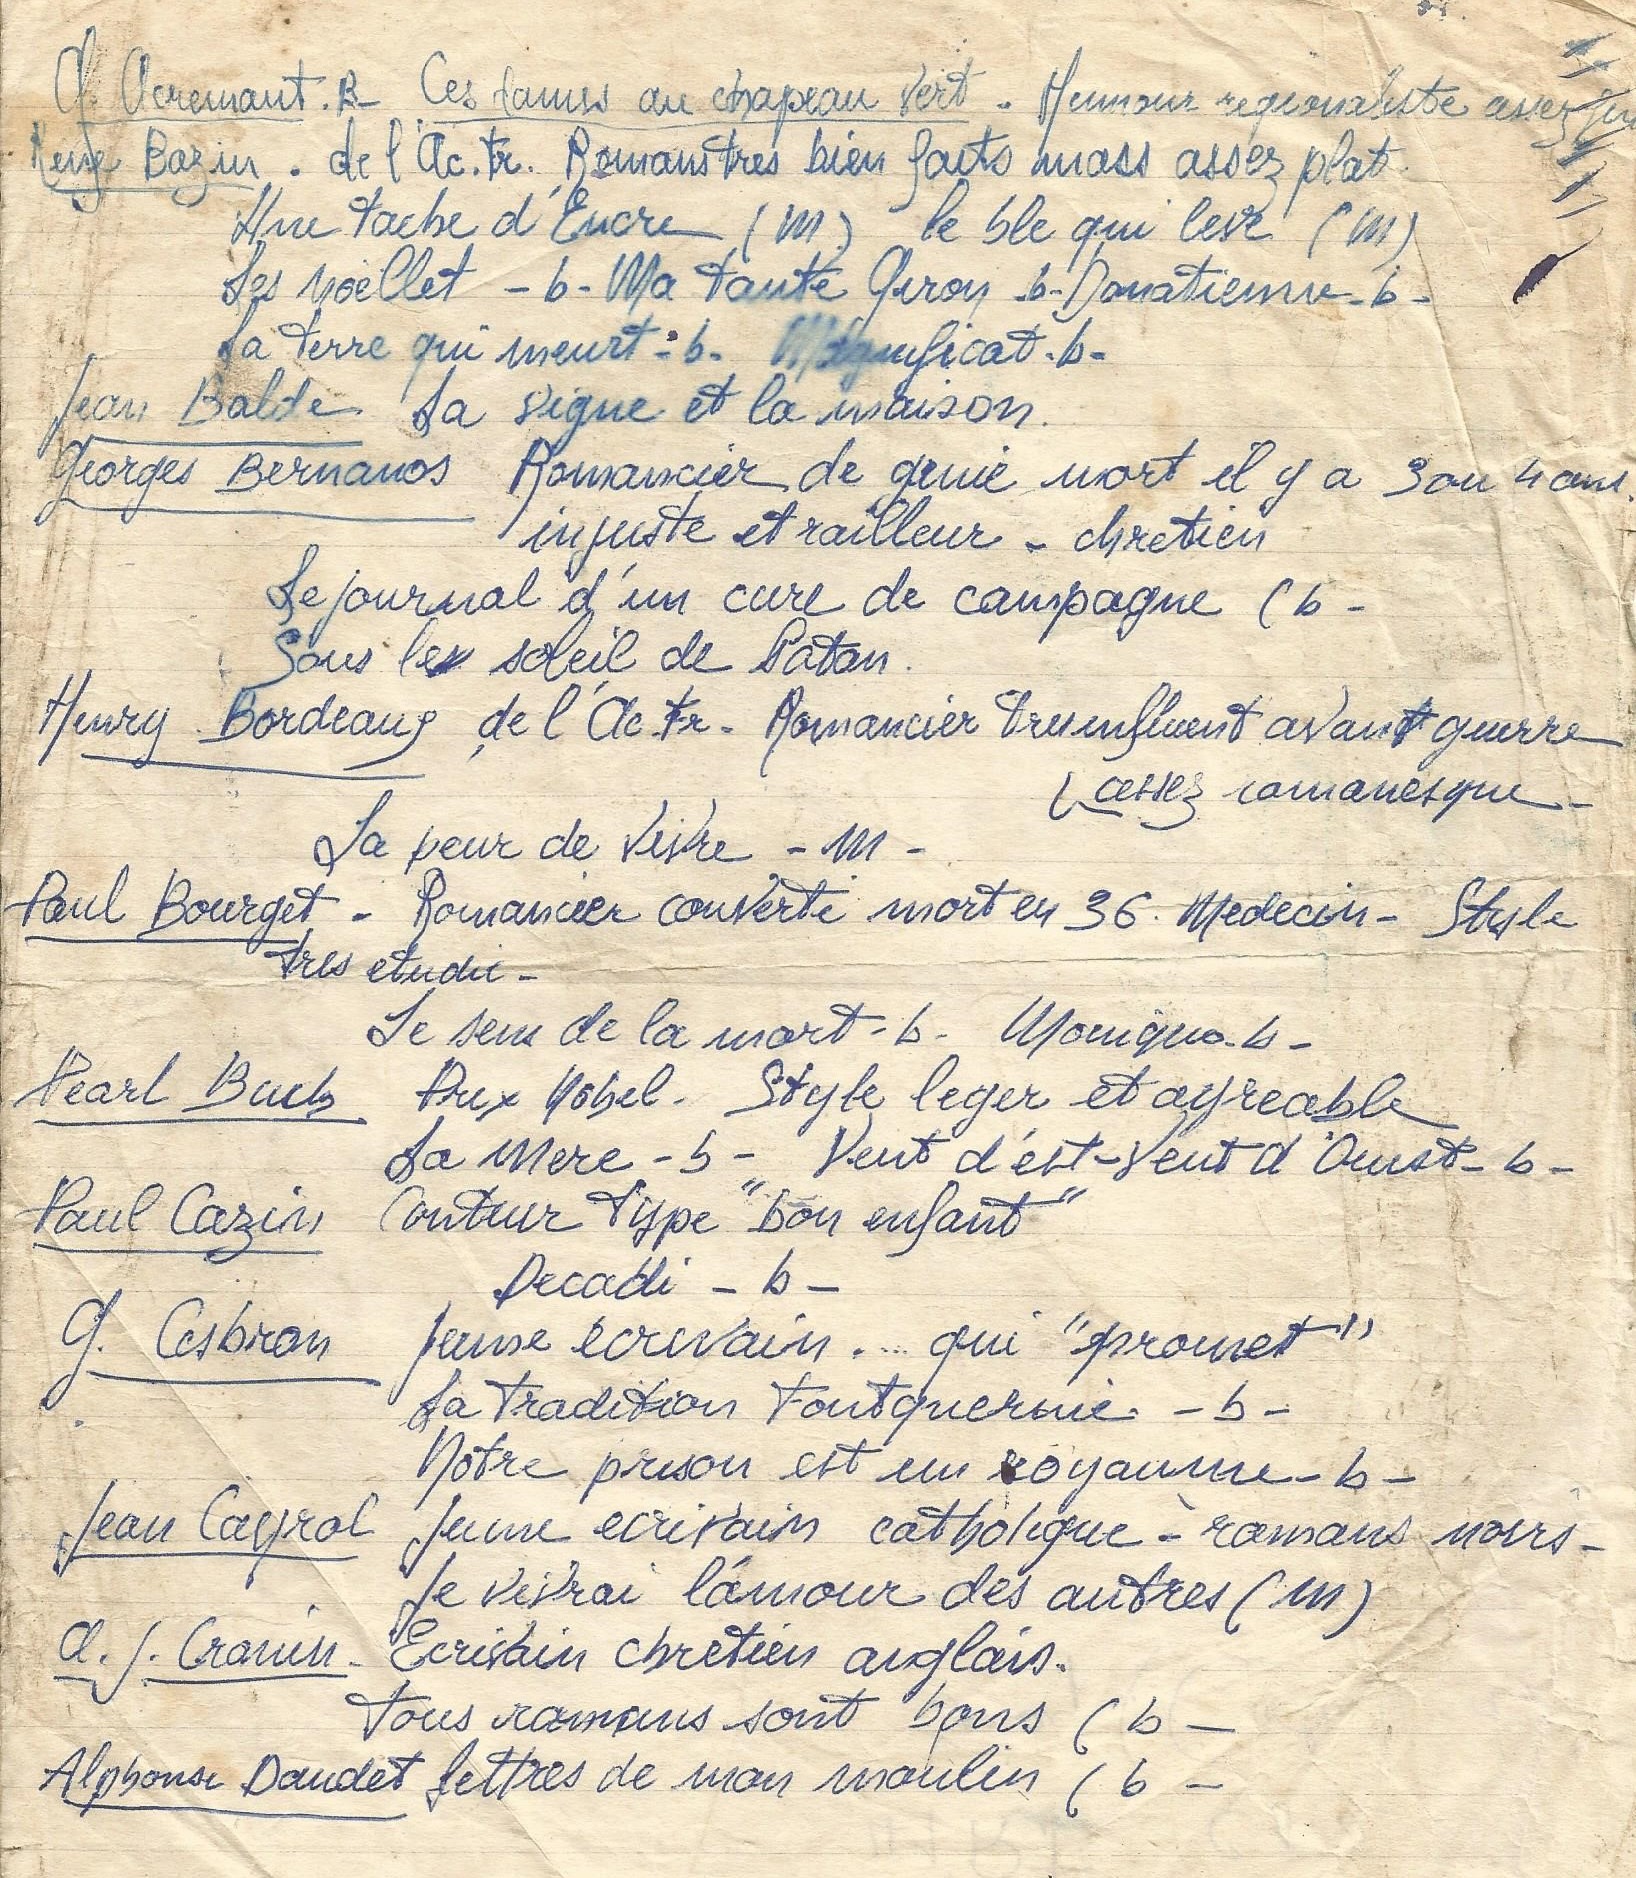 G. Acremant. B - Ces dames au chapeau vert - Humour regionaliste assez
René Bazin. de l'Ac. Fr. Romans tres bien faits mass assez plat.
Une tache d'Encre (m) le ble qui leve (m)
Les Noëllet - b - Ma tante Giron - b - Donatienne - b -
La terre qui meurt - b - Magnificat - b -
Jean Balde La vigne et la maison.
Georges Bernanos Romancier de genie mort il y a 3 ou 4 ans.
injuste et railleur - chretien
Le journal d'un cure de campagne (b -
Sous le soleil de Satan.
Henry Bordeaux de l'Ac. Fr. - Romancier tres influent avant guerre
assez romanesque -
La peur de vivre - m -
Paul Bourget - Romancier converti mort en 36. Medecin - Style
tres etudie -
Le sens de la mort - b - Monique - b -
Pearl Buck Prix Nobel. Style leger et agreable
La Mere - b - Vent d'est - Vent d'Ouest - b -
Paul Cazin Conteur type "bon enfant"
Decadi - b -
G. Cesbron Jeune écrivain .... qui "promet"
La tradition Fontquernie - b -
Notre prison est un royaume - b -
Jean Cayrol Jeune ecrivain catholique - romans noirs -
Je vivrai l'amour des autres (m)
A. J. Cronin - Ecrivain chretien anglais.
Tous romans sont bons (b -
Alphonse Daudet Lettres de mon moulin (b -